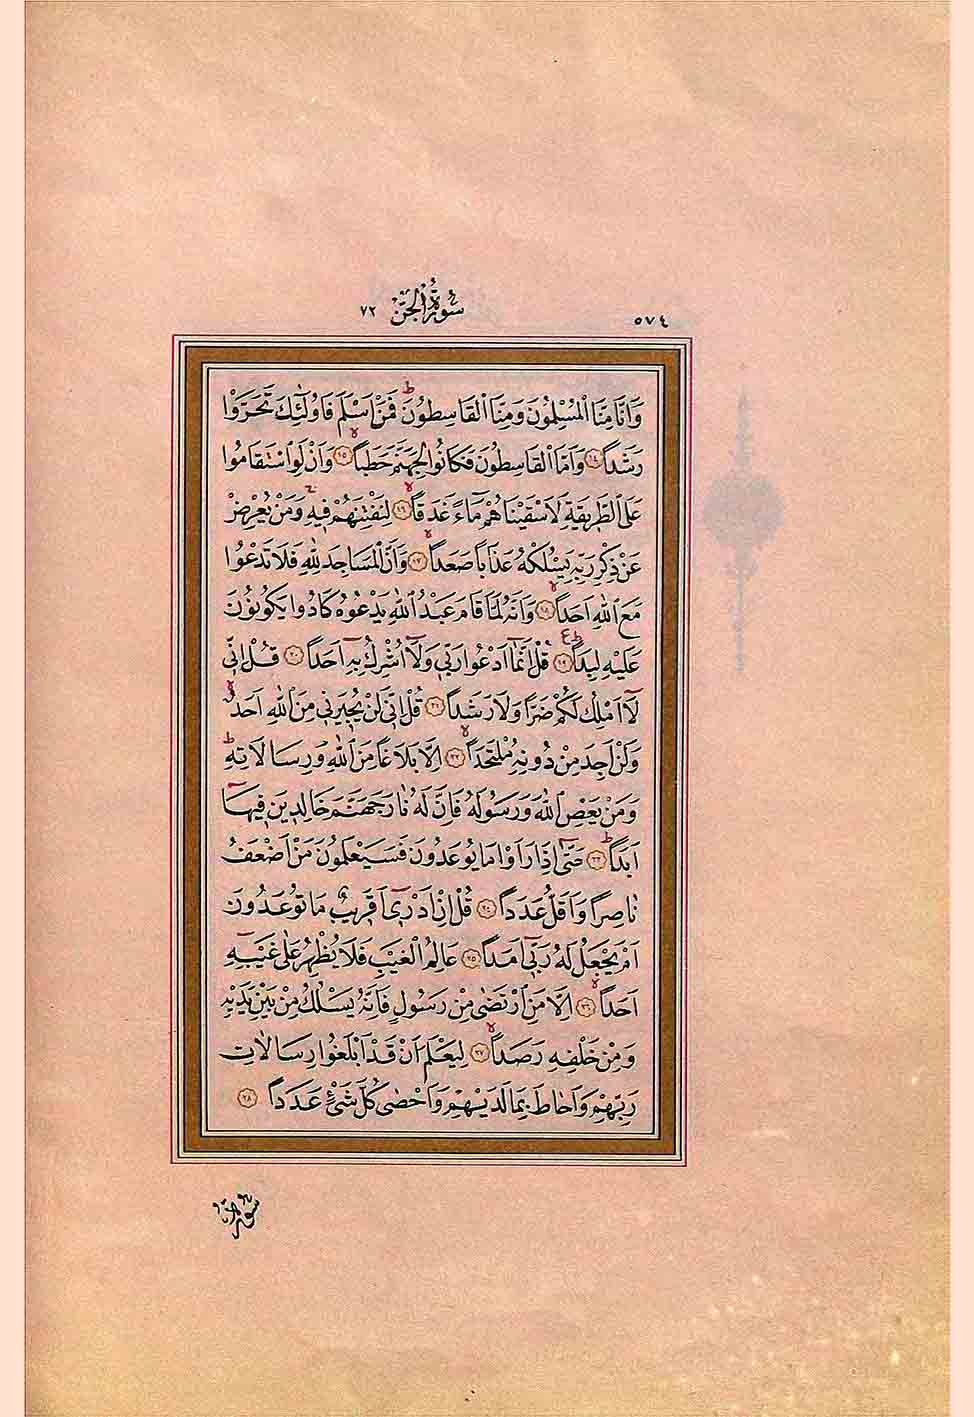 ٥٧٤
سُورَةُ الْجِنِّ ٧٢
وَاَنَّا مِنَّا الْمُسْلِمُونَ وَمِنَّا الْقَاسِطُونَۜ فَمَنْ اَسْلَمَ فَاُو۬لٰٓئِكَ تَحَرَّوْا
رَشَداً ﴿١٤﴾ وَاَمَّا الْقَاسِطُونَ فَكَانُوا لِجَهَنَّمَ حَطَباًۙ ﴿١٥﴾ وَاَنْ لَوِ اسْتَقَامُوا
عَلَى الطَّر۪يقَةِ لَاَسْقَيْنَاهُمْ مَٓاءً غَدَقاًۙ ﴿١٦﴾ لِنَفْتِنَهُمْ ف۪يهِۜ وَمَنْ يُعْرِضْ
عَنْ ذِكْرِ رَبِّه۪ يَسْلُكْهُ عَذَاباً صَعَداًۙ ﴿١٧﴾ وَاَنَّ الْمَسَاجِدَ لِلّٰهِ فَلَا تَدْعُوا
مَعَ اللّٰهِ اَحَداًۙ ﴿١٨﴾ وَاَنَّهُ لَمَّا قَامَ عَبْدُ اللّٰهِ يَدْعُوهُ كَادُوا يَكُونُونَ
عَلَيْهِ لِبَداًۜ ﴿١٩﴾ قُلْ اِنَّمَٓا اَدْعُوا رَبّ۪ي وَلَٓا اُشْرِكُ بِه۪ٓ اَحَداً ﴿٢٠﴾ قُلْ اِنّ۪ي
لَٓا اَمْلِكُ لَكُمْ ضَراًّ وَلَا رَشَداً ﴿٢١﴾ قُلْ اِنّ۪ي لَنْ يُج۪يرَن۪ي مِنَ اللّٰهِ اَحَدٌۙ
وَلَنْ اَجِدَ مِنْ دُونِه۪ مُلْتَحَداًۙ ﴿٢٢﴾ اِلَّا بَلَاغاً مِنَ اللّٰهِ وَرِسَالَاتِه۪ۜ
وَمَنْ يَعْصِ اللّٰهَ وَرَسُولَهُ فَاِنَّ لَهُ نَارَ جَهَنَّمَ خَالِد۪ينَ ف۪يهَٓا
اَبَداًۜ ﴿٢٣﴾ حَتّٰٓى اِذَا رَاَوْا مَا يُوعَدُونَ فَسَيَعْلَمُونَ مَنْ اَضْعَفُ
نَاصِراً وَاَقَلُّ عَدَداً ﴿٢٤﴾ قُلْ اِنْ اَدْر۪ٓي اَقَر۪يبٌ مَا تُوعَدُونَ
اَمْ يَجْعَلُ لَهُ رَبّ۪ٓي اَمَداً ﴿٢٥﴾ عَالِمُ الْغَيْبِ فَلَا يُظْهِرُ عَلٰى غَيْبِه۪ٓ
اَحَداًۙ ﴿٢٦﴾ اِلَّا مَنِ ارْتَضٰى مِنْ رَسُولٍ فَاِنَّهُ يَسْلُكُ مِنْ بَيْنِ يَدَيْهِ
وَمِنْ خَلْفِه۪ رَصَداًۙ ﴿٢٧﴾ لِيَعْلَمَ اَنْ قَدْ اَبْلَغُوا رِسَالَاتِ
رَبِّهِمْ وَاَحَاطَ بِمَا لَدَيْهِمْ وَاَحْصٰى كُلَّ شَيْءٍ عَدَداً ﴿٢٨﴾
سُورَةُ